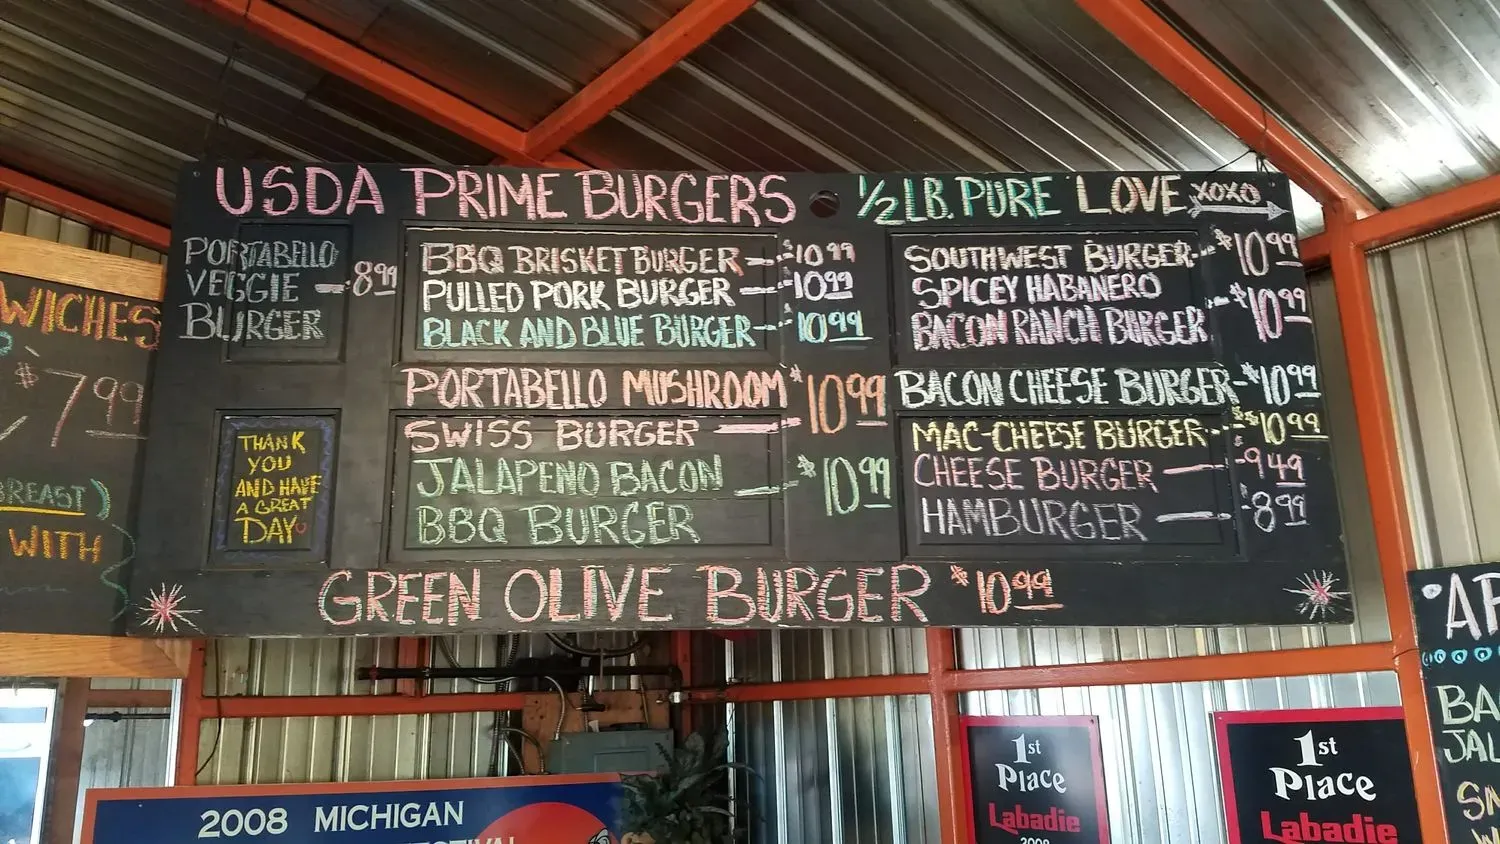 USDA PRIME BURGERS
1/2 LB. PURE LOVE XOXO
PORTABELLO
VEGGIE - 8.99
BURGER
BBQ BRISKET BURGER - $10.99
PULLED PORK BURGER - 10.99
BLACK AND BLUE BURGER - 10.99
PORTABELLO MUSHROOM $10.99
SWISS BURGER
JALAPENO BACON $10.99
BBQ BURGER
SOUTHWEST BURGER - $10.99
SPICEY HABANERO
BACON RANCH BURGER - $10.99
BACON CHEESE BURGER - $10.99
MAC-CHEESE BURGER - $10.99
CHEESE BURGER - 9.49
HAMBURGER - 8.99
GREEN OLIVE BURGER $10.99
THANK
YOU
AND HAVE
A GREAT
DAY
WICHES
$7.99
BREAST)
WITH
2008 MICHIGAN
1st
Place
Labadie
2008
1st
Place
Labadie
BA
JAL